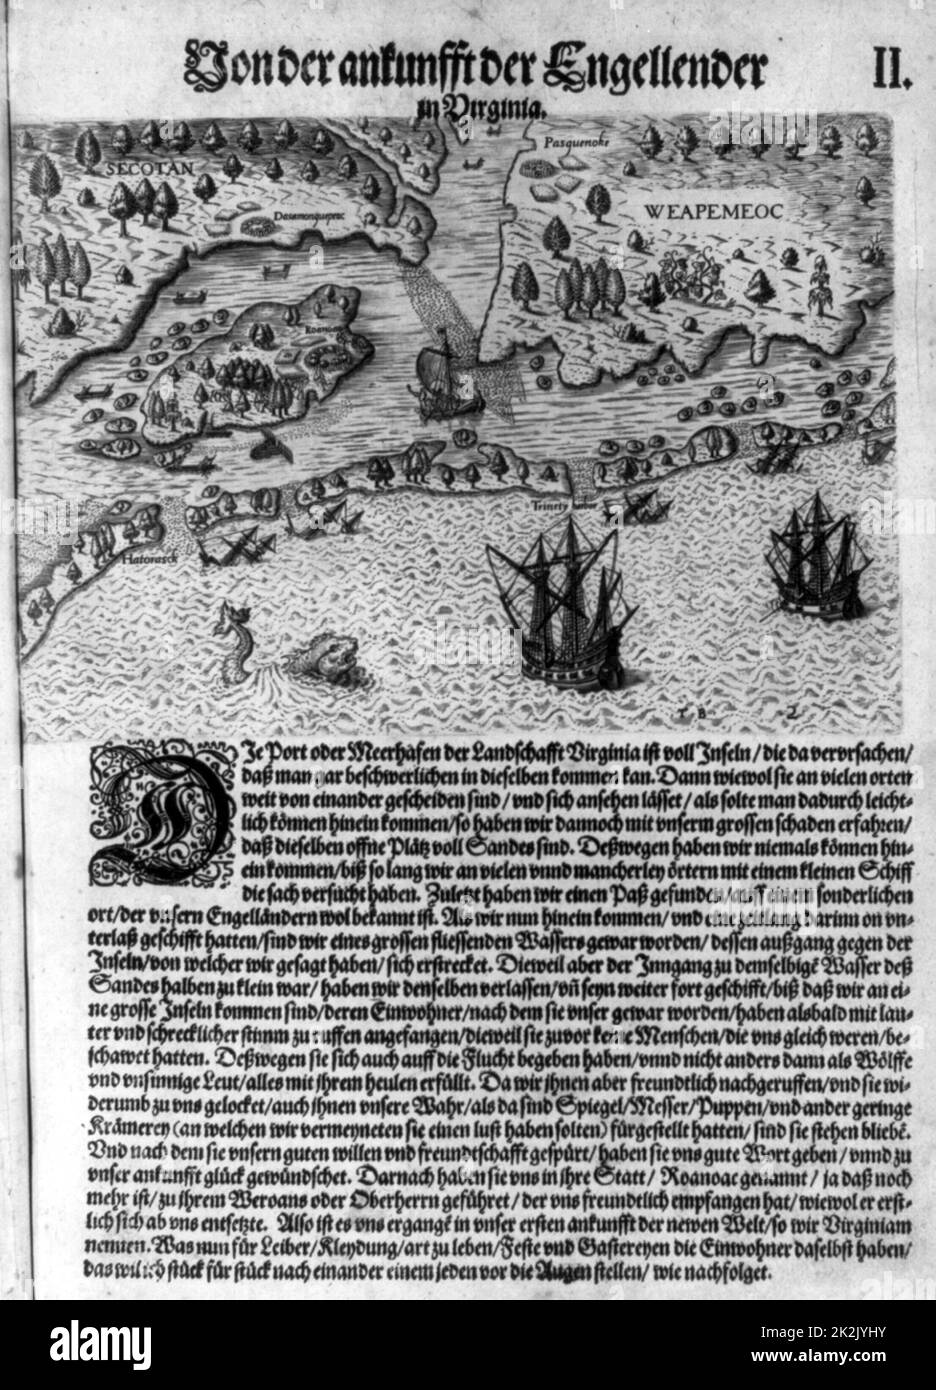 Von der ankunfft der Engellender
in Virginia.
II.
SECOTAN
Dasemonquepeuc
Pasquenoke
WEAPEMEOC
Roanoac
Trinety harbor
Hatorasck
T B
2
DIe Port oder Meerhafen der Landschafft Virginia ist voll Inseln/ die da vervrsachen/
daß man gar beschwerlichen in dieselben kommen kan. Dann wiewol sie an vielen orten
weit von einander gescheiden sind/ vnd sich ansehen lässet/ als solte man dadurch leicht-
lich können hinein kommen/ so haben wir dannoch mit vnserm grossen schaden erfahren/
daß dieselben offne Plätz voll Sandes sind. Deßwegen haben wir niemals können hin-
ein kommen/ biß so lang wir an vielen vnnd mancherley örtern mit einem kleinen Schiff
die sach versucht haben. Zuletzt haben wir einen Paß gefunden/ auff einem sonderlichen
ort/ der vnsern Engelländern wol bekannt ist. Als wir nun hinein kommen/ vnd eine zeitlang darinn on vn-
terlaß geschifft hatten/ sind wir eines grossen fliessenden Wassers gewar worden/ dessen außgang gegen der
Inseln/ von welcher wir gesagt haben/ sich erstrecket. Dieweil aber der Inngang zu demselbigē Wasser deß
Sandes halben zu klein war/ haben wir denselben verlassen/ vn̄ seyn weiter fort geschifft/ biß daß wir an ei-
ne grosse Inseln kommen sind/ deren Einwohner/ nach dem sie vnser gewar worden/ haben alsbald mit lau-
ter vnd schrecklicher stimm zu ruffen angefangen/ dieweil sie zuvor keine Menschen/ die vns gleich weren/ be-
schawet hatten. Deßwegen sie sich auch auff die Flucht begeben haben/ vnnd nicht anders dann als Wölffe
vnd vnsinnige Leut/ alles mit jhrem heulen erfüllt. Da wir jhnen aber freundtlich nachgeruffen/ vnd sie wi-
derumb zu vns gelocket/ auch jhnen vnsere Wahr/ als da sind Spiegel/ Messer/ Puppen/ vnd ander geringe
Krämerey (an welchen wir vermeyneten sie einen lust haben solten) fürgestellt hatten/ sind sie stehen bliebē.
Vnd nach dem sie vnsern guten willen vnd freundtschafft gespürt/ haben sie vns gute Wort geben/ vnnd zu
vnser ankunfft glück gewündschet. Darnach haben sie vns in jhre Statt/ Roanoac genannt/ ja daß noch
mehr ist/ zu jhrem Weroans oder Oberherrn geführet/ der vns freundtlich empfangen hat/ wiewol er erst-
lich sich ab vns entsetzte. Also ist es vns ergangē in vnser ersten ankunfft der newen Welt/ so wir Virginiam
nennen. Was nun für Leiber/ Kleydung/ art zu leben/ Feste vnd Gastereyen die Einwohner daselbst haben/
das wil ich stück für stück nach einander einem jeden vor die Augen stellen/ wie nachfolget.
alamy
Image ID: 2K2JYHY
www.alamy.com